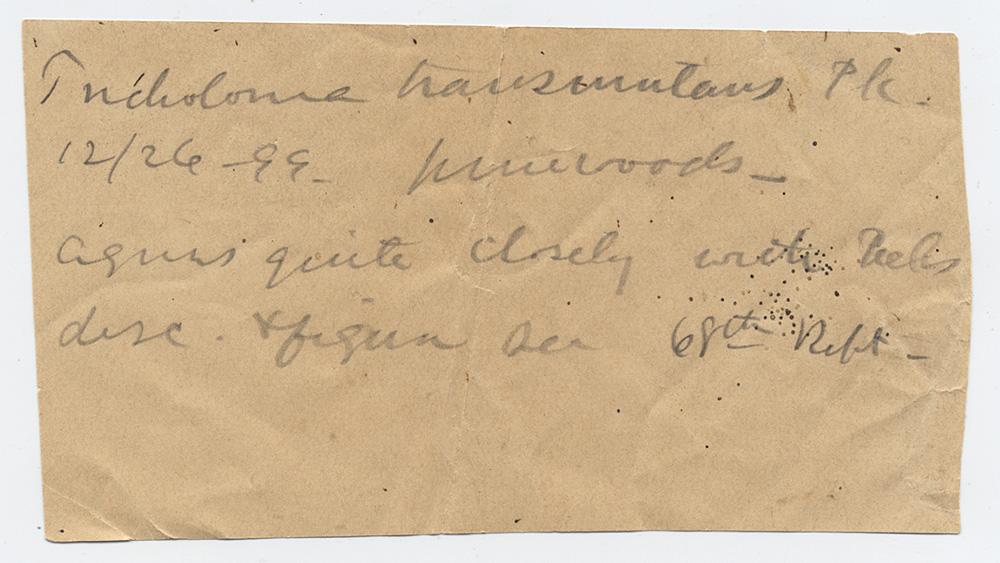 Tricholoma transmutans Pk.
12/26-99- pinewoods-
agrees quite closely with Pecks
desc. & figure see 68th Rept-